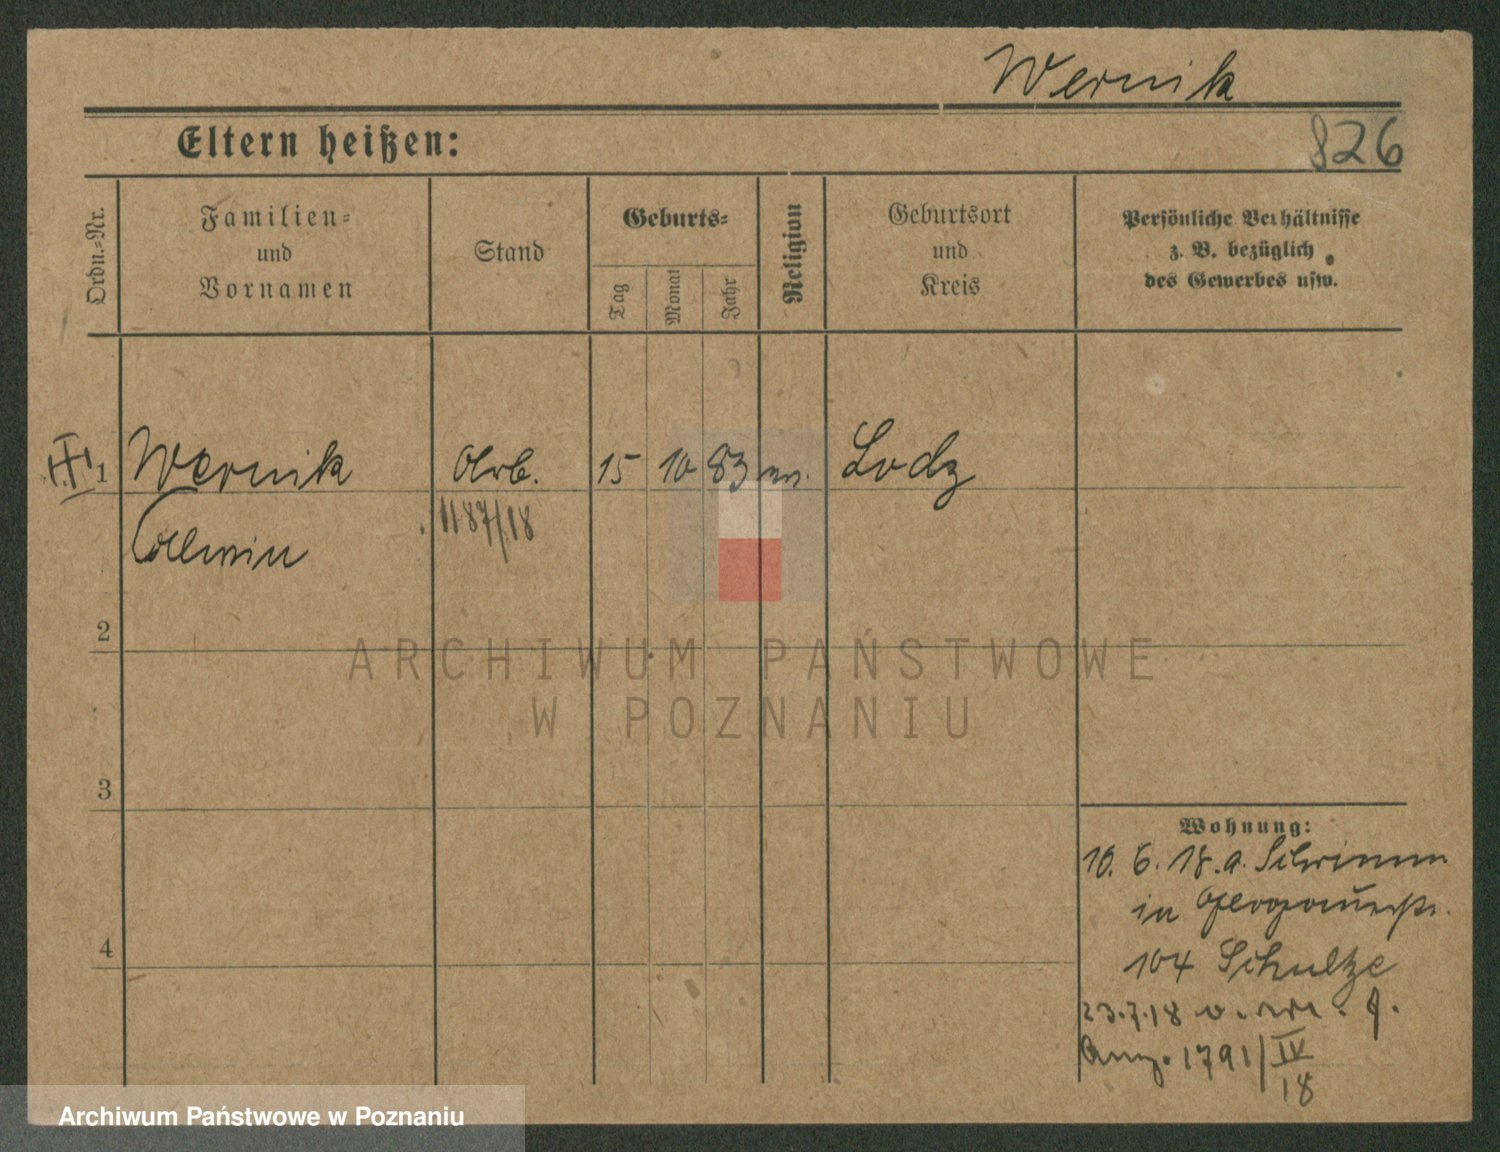 Wernik
826
Eltern heißen:
Ordn.=Nr.
Familien=
und
Vornamen
Stand
Geburts=
Tag
Monat
Jahr
Religion
Geburtsort
und
Kreis
Persönliche Verhältnisse
z. B. bezüglich
des Gewerbes usw.
1
Wernik
Arb.
15
10
83
Lodz
1187/18
2
ARCHIWUM PAŃSTWOWE
W POZNANIU
3
Wohnung:
10. 6. 18. a. Schrimm
in Glogauerstr.
4
104 Schultze
23.7.18 v.
1791/IV
18
Archiwum Państwowe w Poznaniu